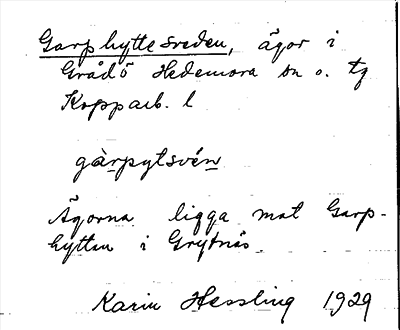 Garphyttesveden, ägor i
Grådö Hedemora sn o. tg
Kopparb. l
gàrpytsvén
Ägorna ligga mot Garp-
hyttan i Grytnäs
Karin Hessling 1929